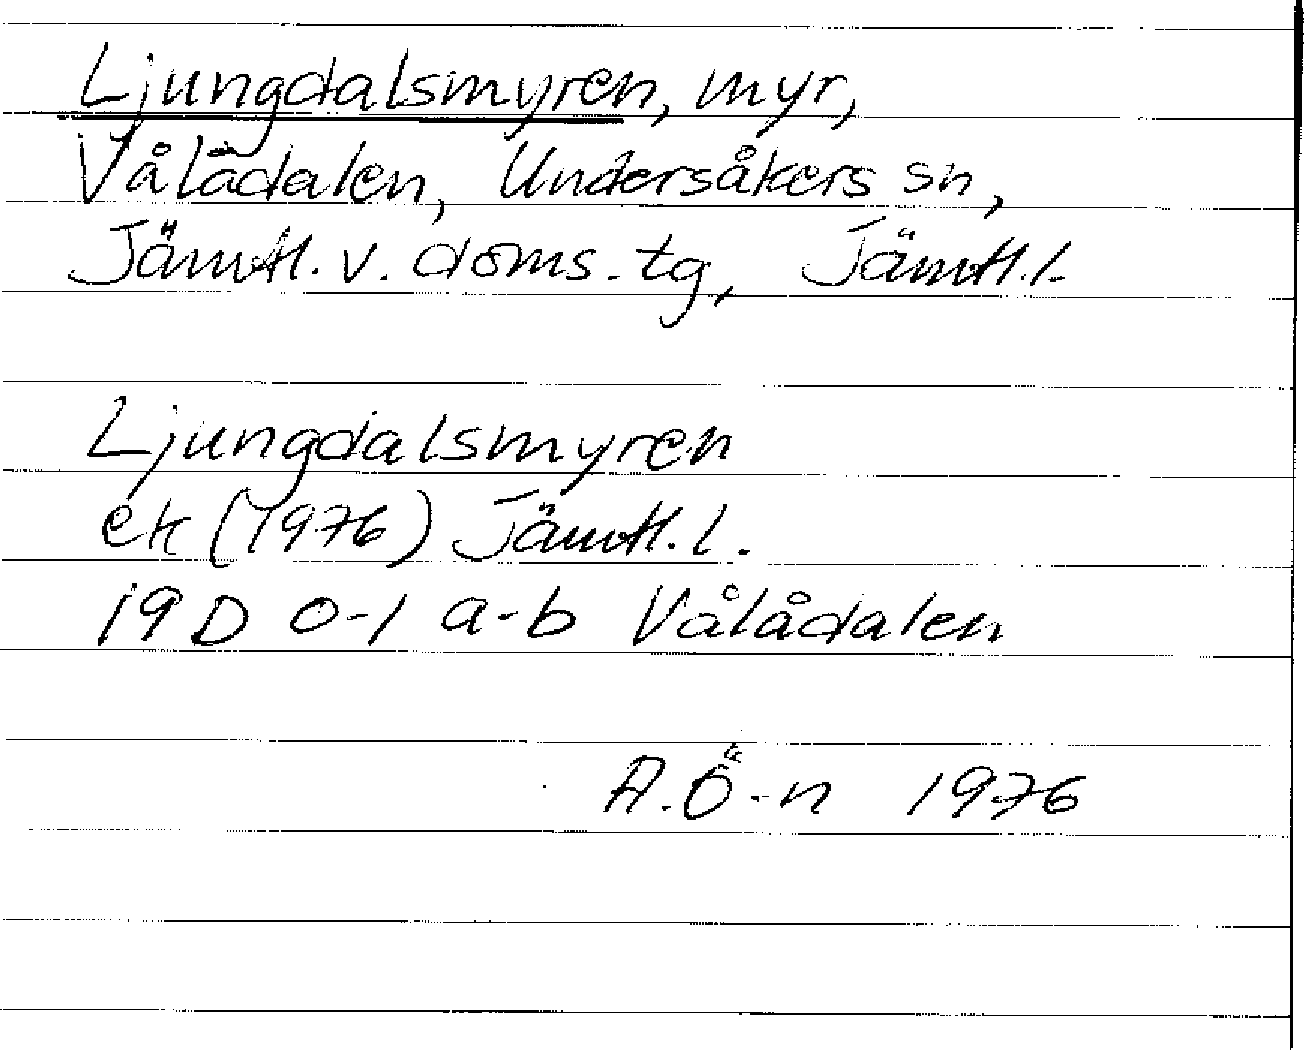 Ljungdalsmyren, myr,
Vålådalen, Undersåkers sn,
Jämtl. v. doms. tg, Jämtl. l.
Ljungdalsmyren
ek (1976) Jämtl. l.
19 D 0-1 a-b Vålådalen
A. Ö-n 1976